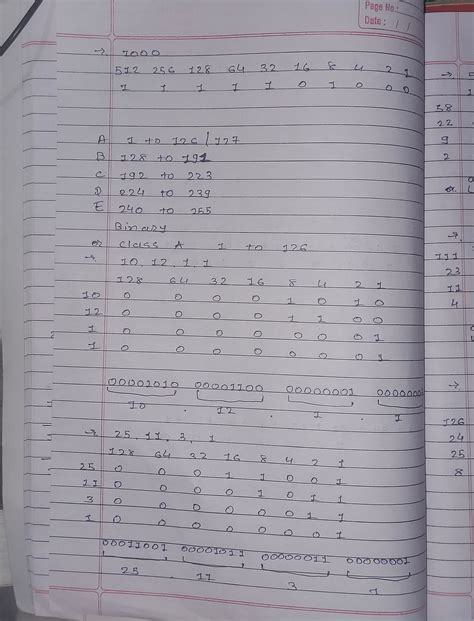 Page No.:
Date: / /
→ 1000
512 256 128 64 32 16 8 4 2 1
1 1 1 1 1 0 1 0 0 0
A 1 to 126/127
B 128 to 191
C 192 to 223
D 224 to 239
E 240 to 255
Binary
Class A 1 to 126
→ 10.12.1.1
128 64 32 16 8 4 2 1
10 0 0 0 0 1 0 1 0
12 0 0 0 0 1 1 0 0
1 0 0 0 0 0 0 0 1
1 0 0 0 0 0 0 0 1
00001010 00001100 00000001 0000000
10 . 12 . 1 . 1
→ 25.11.3.1
128 64 32 16 8 4 2 1
25 0 0 0 1 1 0 0 1
11 0 0 0 0 1 0 1 1
3 0 0 0 0 0 0 1 1
1 0 0 0 0 0 0 0 1
00011001 00001011 00000011 00000001
25 . 11 3 1
→
1
38
22
9
2
→
111
23
11
4
→
126
24
25
8